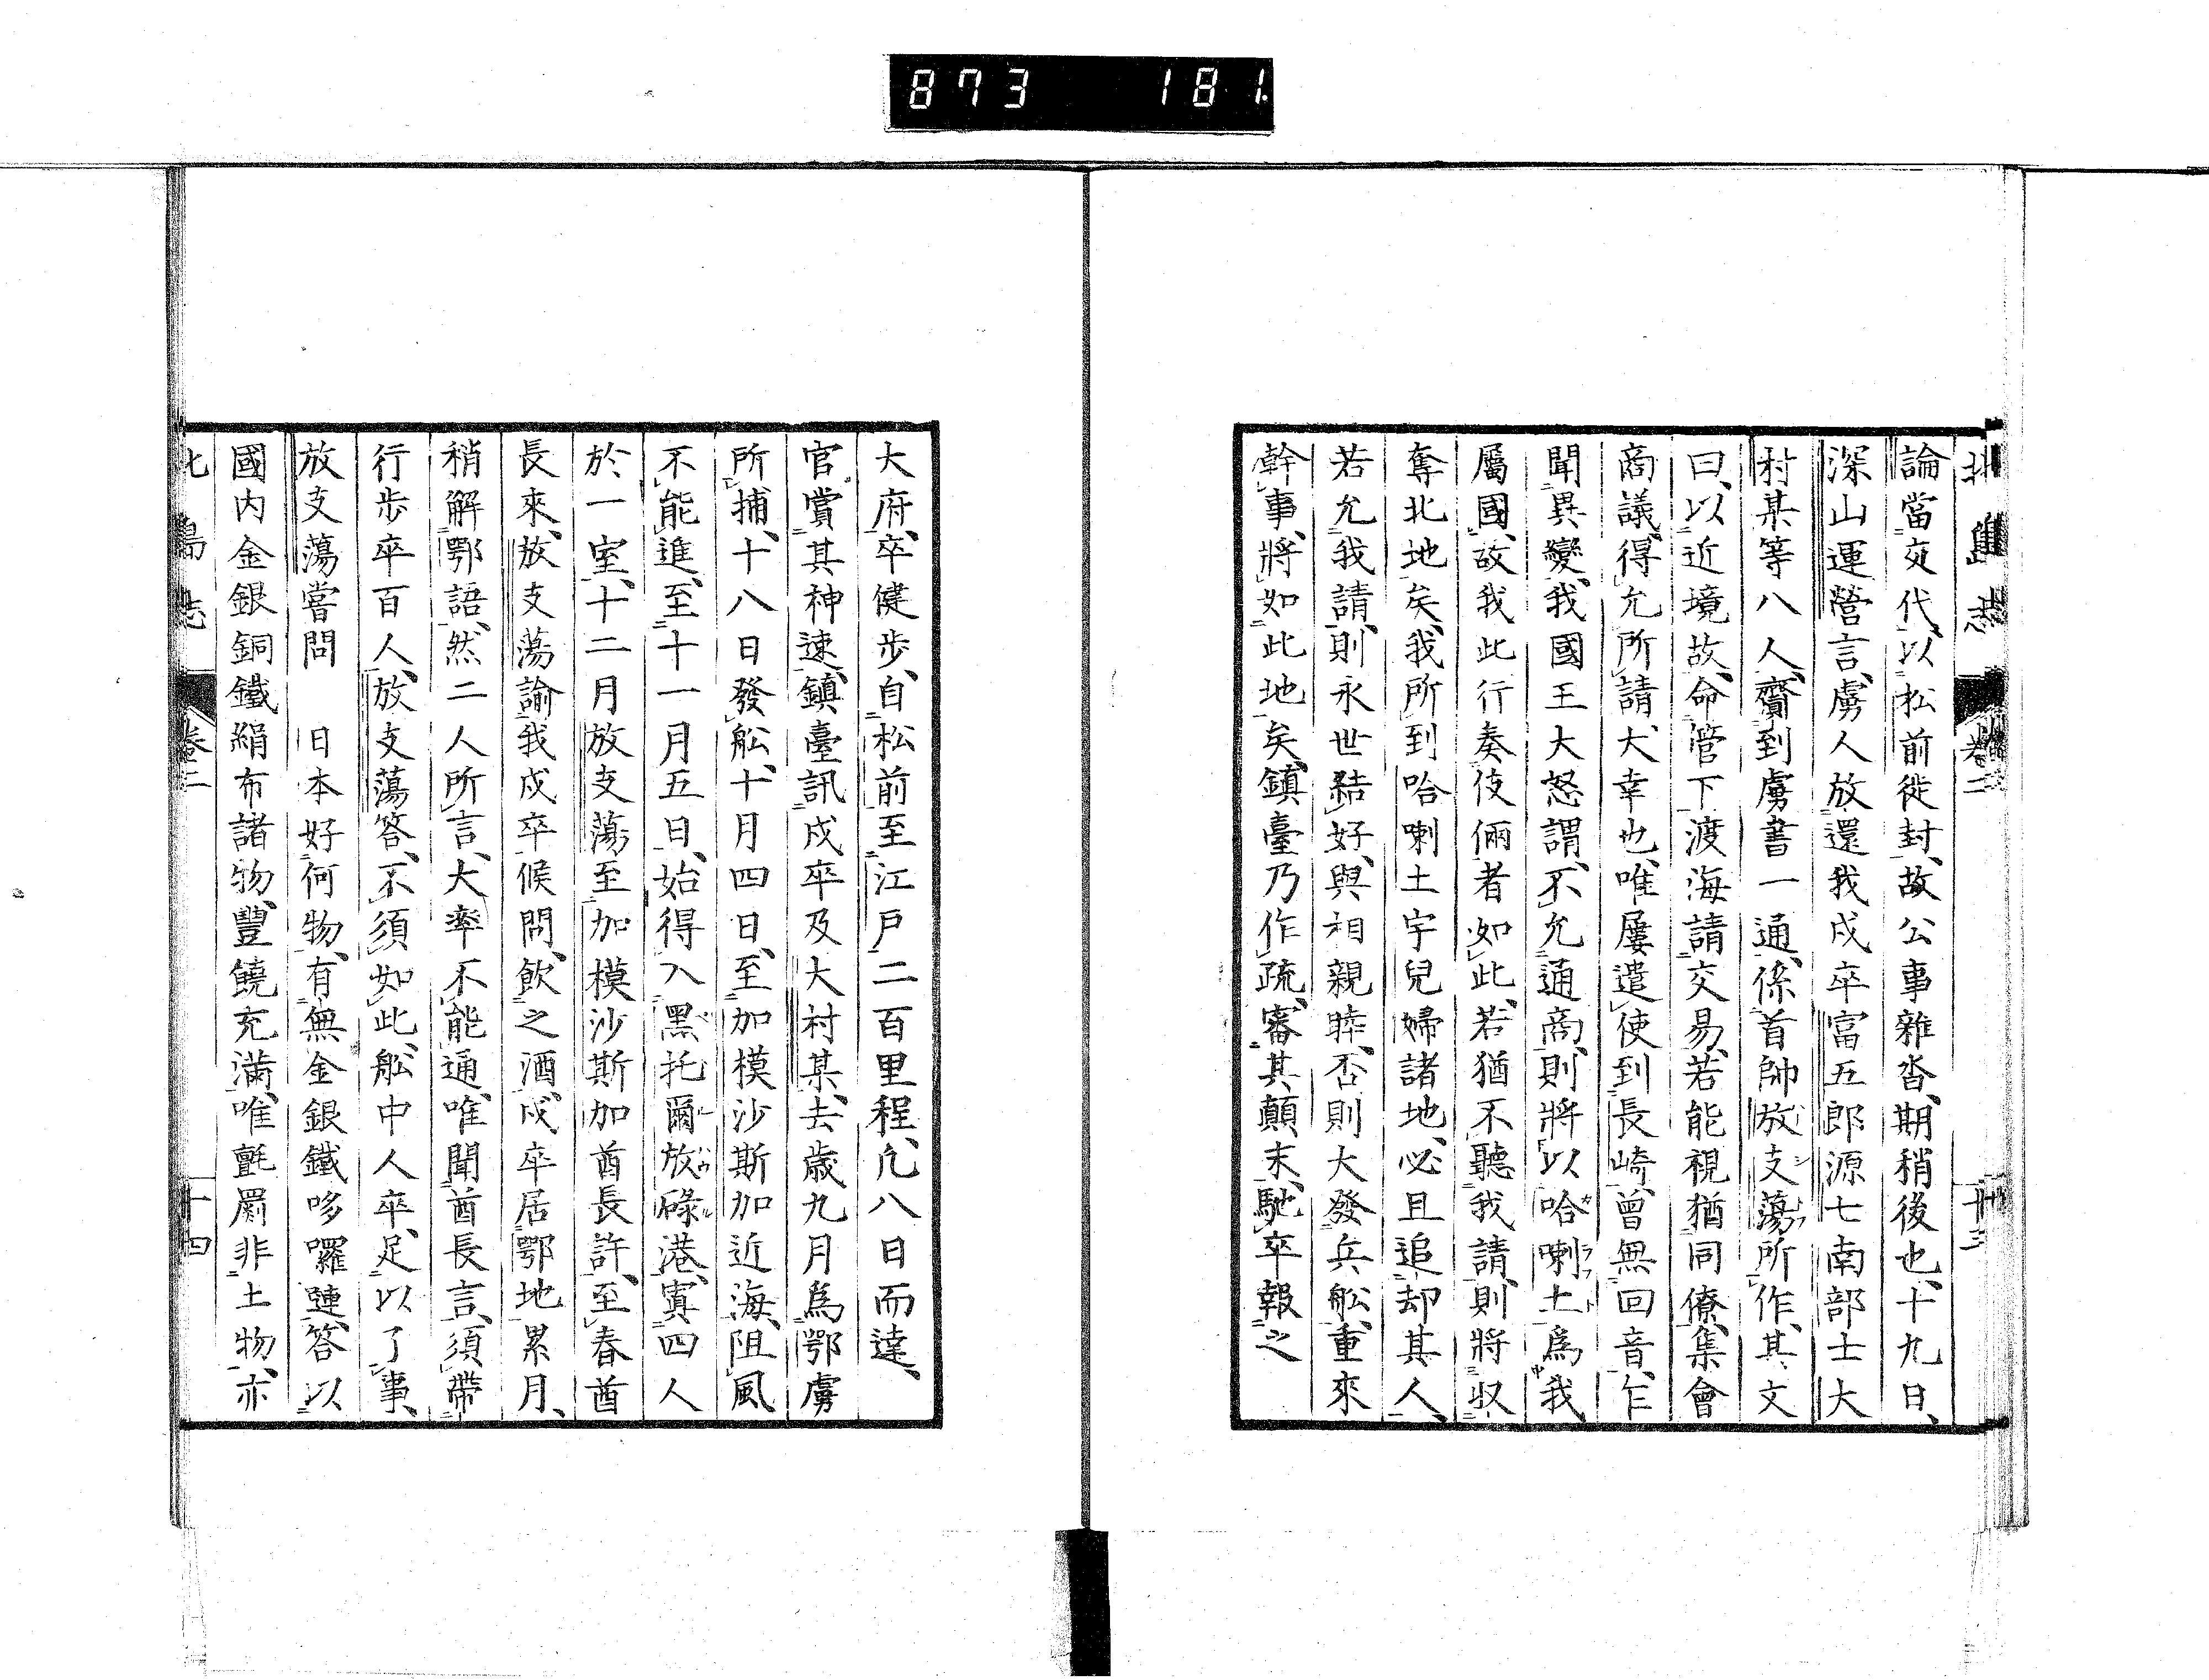 873 181
北島志 卷二 十三
論當交代、以松前徙封、故公事雜沓、期稍後也、十九日、
深山運營言、虜人放還我戍卒富五郎源七南部士大
村某等八人、齎到虜書一通、係首帥放支蕩所作、其文
曰、以近境故、命管下渡海請交易、若能視猶同僚、集會
商議、得允所請、大幸也、唯屢遣使到長崎、曾無回音、乍
聞異變、我國王大怒謂、不允通商、則將以哈喇土爲我
屬國、故我此行奏伎倆者如此、若猶不聽我請、則將收
奪北地矣、我所到哈喇土宇兒婦諸地、必且追却其人、
若允我請、則永世結好、與相親睦、否則大發兵舩、重來
幹事、將如此地矣、鎮臺乃作疏、審其顛末、馳卒報之
大府、卒健步、自松前至江戶二百里程、凢八日而達、
官賞其神速、鎮臺訊戍卒及大村某、去歲九月爲鄂虜
所捕、十八日發舩、十月四日、至加模沙斯加近海、阻風
不能進、至十一月五日、始得入黑托爾放碌港、寘四人
於一室、十二月放支蕩至加模沙斯加酋長許、至春酋
長來、放支蕩諭我戍卒候問、飲之酒、戍卒居鄂地累月、
稍解鄂語、然二人所言、大率不能通、唯聞酋長言、須帶
行步卒百人、放支蕩答、不須如此、舩中人卒、足以了事、
放支蕩嘗問 日本好何物、有無金銀鐵哆囉璉、答以
國内金銀銅鐵絹布諸物、豐饒充滿、唯氈罽非土物、亦
北島志 卷二 十四